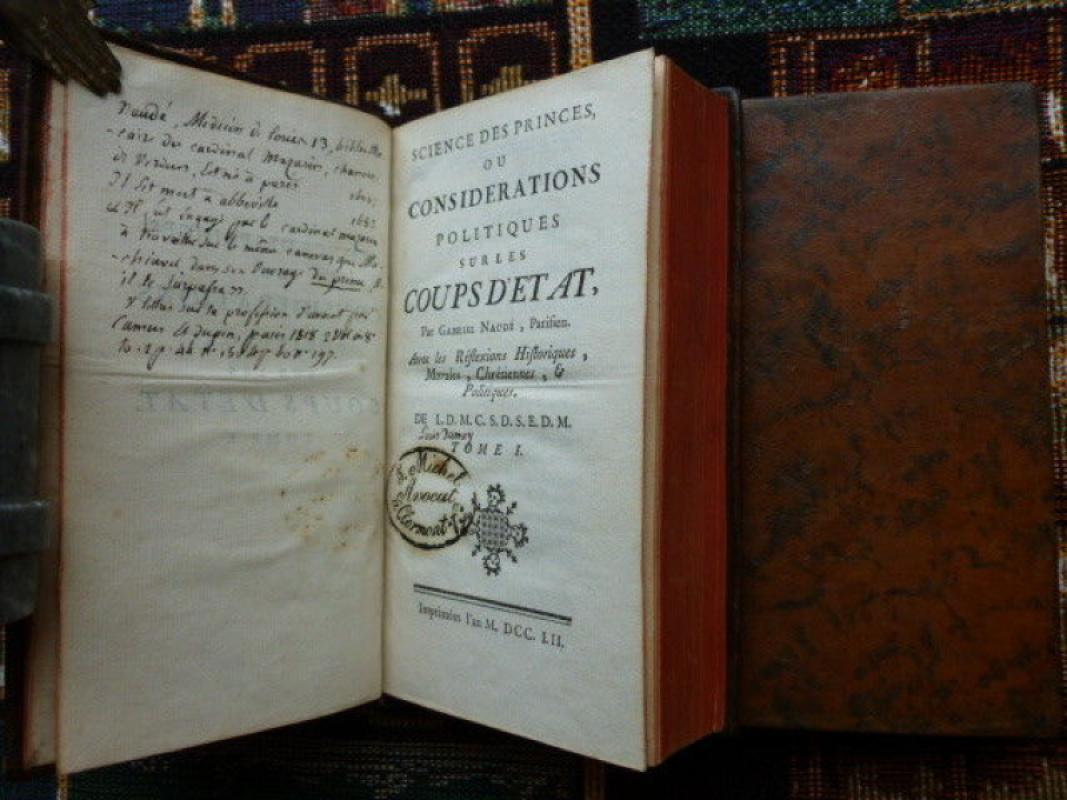 naudé, Medecin de Louis 13, bibliothe
-caire du cardinal Mazarin, chanoine
de Verdun, est né à paris
Il est mort à abbeville
Il fut engagé par le cardinal mazarin
à travailler sur le même canevas que Ma-
-chiavel dans son ouvrage du prince &
il le surpassa
V lettres sur la profession d'avocat par
Camus & dupin, paris 1818 2 Vol in 8°
SCIENCE DES PRINCES,
OU
CONSIDERATIONS
POLITIQUES
SUR LES
COUPS D'ETAT,
Par GABRIEL NAUDÉ, Parisien.
Avec les Réflexions Historiques,
Morales, Chrétiennes, &
Politiques.
DE L. D. M. C. S. D. S. E. D. M.
Louis Dumay
TOME I.
Michel
Avocat
à Clermont
Imprimées l'an M. DCC. LII.